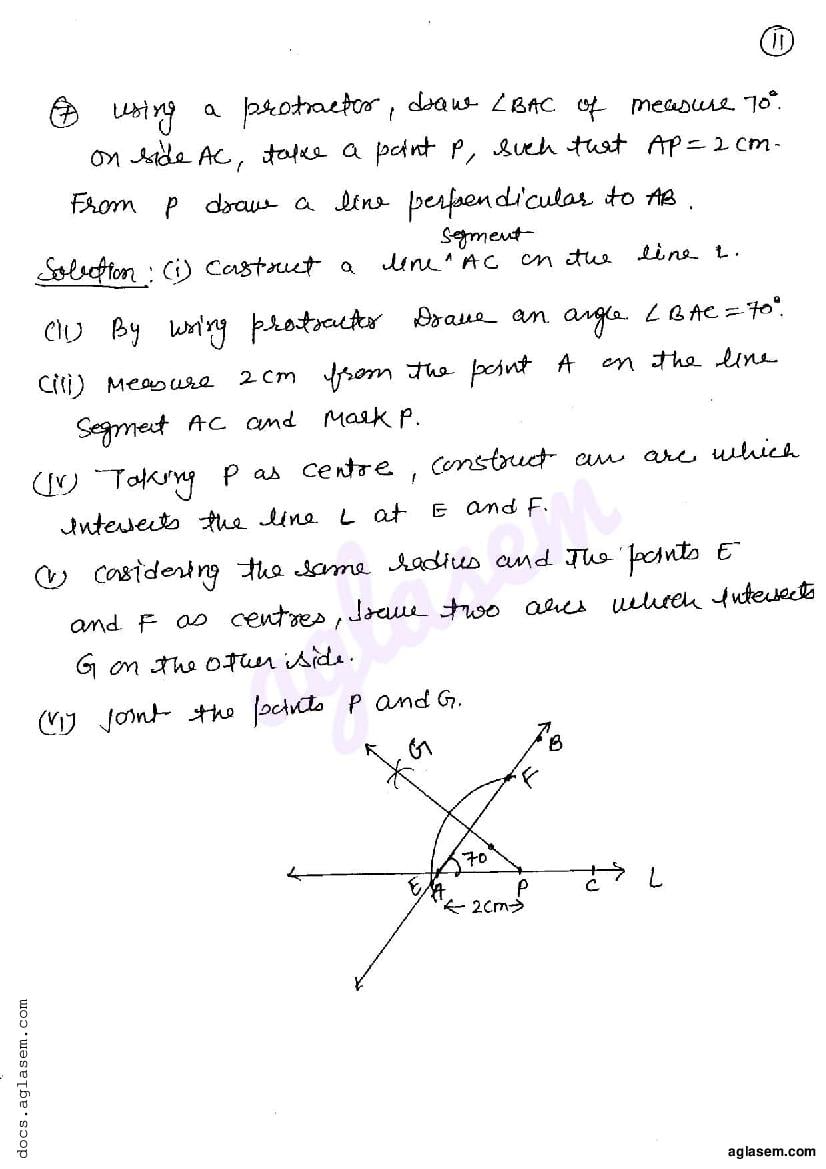 11
7 Using a protractor, draw ∠BAC of measure 70°.
On side AC, take a point P, such that AP = 2 cm.
From P draw a line perpendicular to AB.
Segment
Solution: (i) Castruct a line ^ AC on the line L.
(ii) By using protractor Draw an angle ∠BAC = 70°.
(iii) Measure 2 cm from the point A on the line
Segment AC and Mark P.
(iv) Taking P as centre, construct an arc which
intersects the line L at E and F.
(v) Casidering the same radius and The points E
and F as centres, draw two arcs which intersects
G on the other side.
(vi) Joint the points P and G.
G
B
F
70°
E A P C L
2cm
aglasem
docs.aglasem.com
aglasem.com